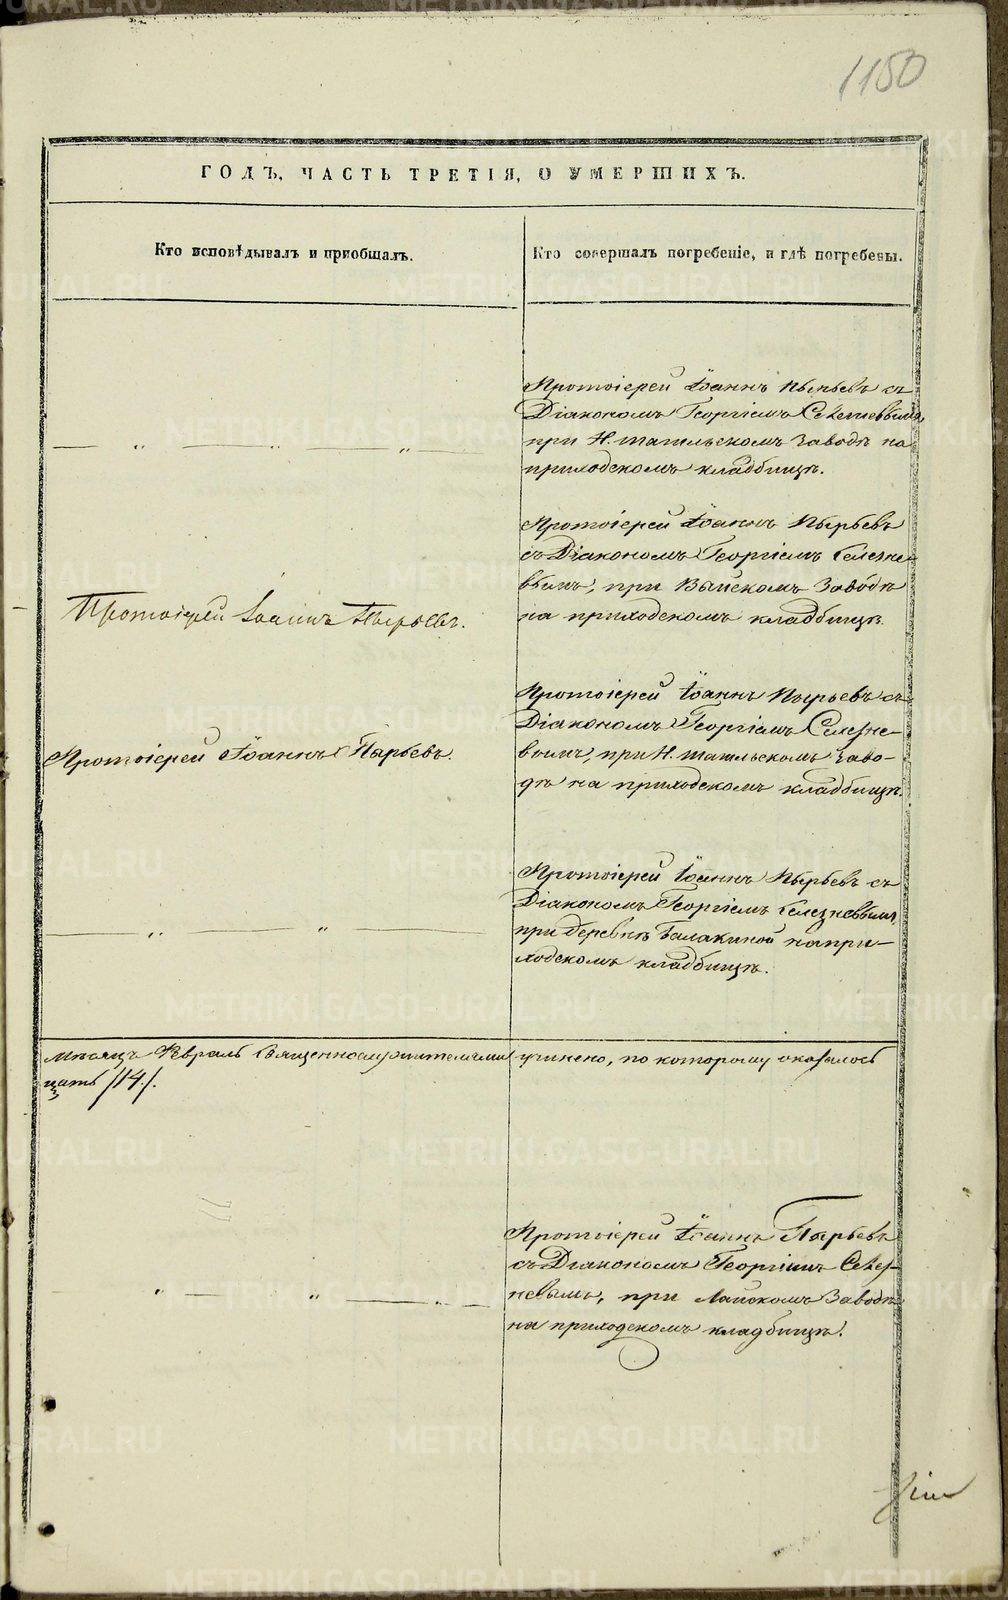 1150
ГОДЪ, ЧАСТЬ ТРЕТІЯ, О УМЕРШИХЪ.
Кто исповѣдывалъ и приобщалъ.
Кто совершалъ погребеніе, и гдѣ погребены.
Протоіерей Іоаннъ Пырьевъ съ
Діакономъ Георгіемъ Селезневымъ
при Н. тагильскомъ заводѣ на
приходскомъ кладбищѣ.
Протоіерей Іоаннъ Пырьевъ.
Протоіерей Іоаннъ Пырьевъ
съ Діакономъ Георгіемъ Селезне-
вымъ, при Выйскомъ Заводѣ
на приходскомъ кладбищѣ.
Протоіерей Іоаннъ Пырьевъ.
Протоіерей Іоаннъ Пырьевъ съ
Діакономъ Георгіемъ Селезне-
вымъ, при Н. тагильскомъ Заво-
дѣ на приходскомъ кладбищѣ.
Протоіерей Іоаннъ Пырьевъ съ
Діакономъ Георгіемъ Селезневымъ
при деревнѣ Балакиной на при-
ходскомъ кладбищѣ.
мѣсяцъ Февраль Священнослужителями учинено, по которому оказалось
цать /14/.
Протоіерей Іоаннъ Пырьевъ
съ Діакономъ Георгіемъ Селез-
невымъ, при Лайскомъ Заводѣ
на приходскомъ кладбищѣ.
METRIKI.GASO-URAL.RU